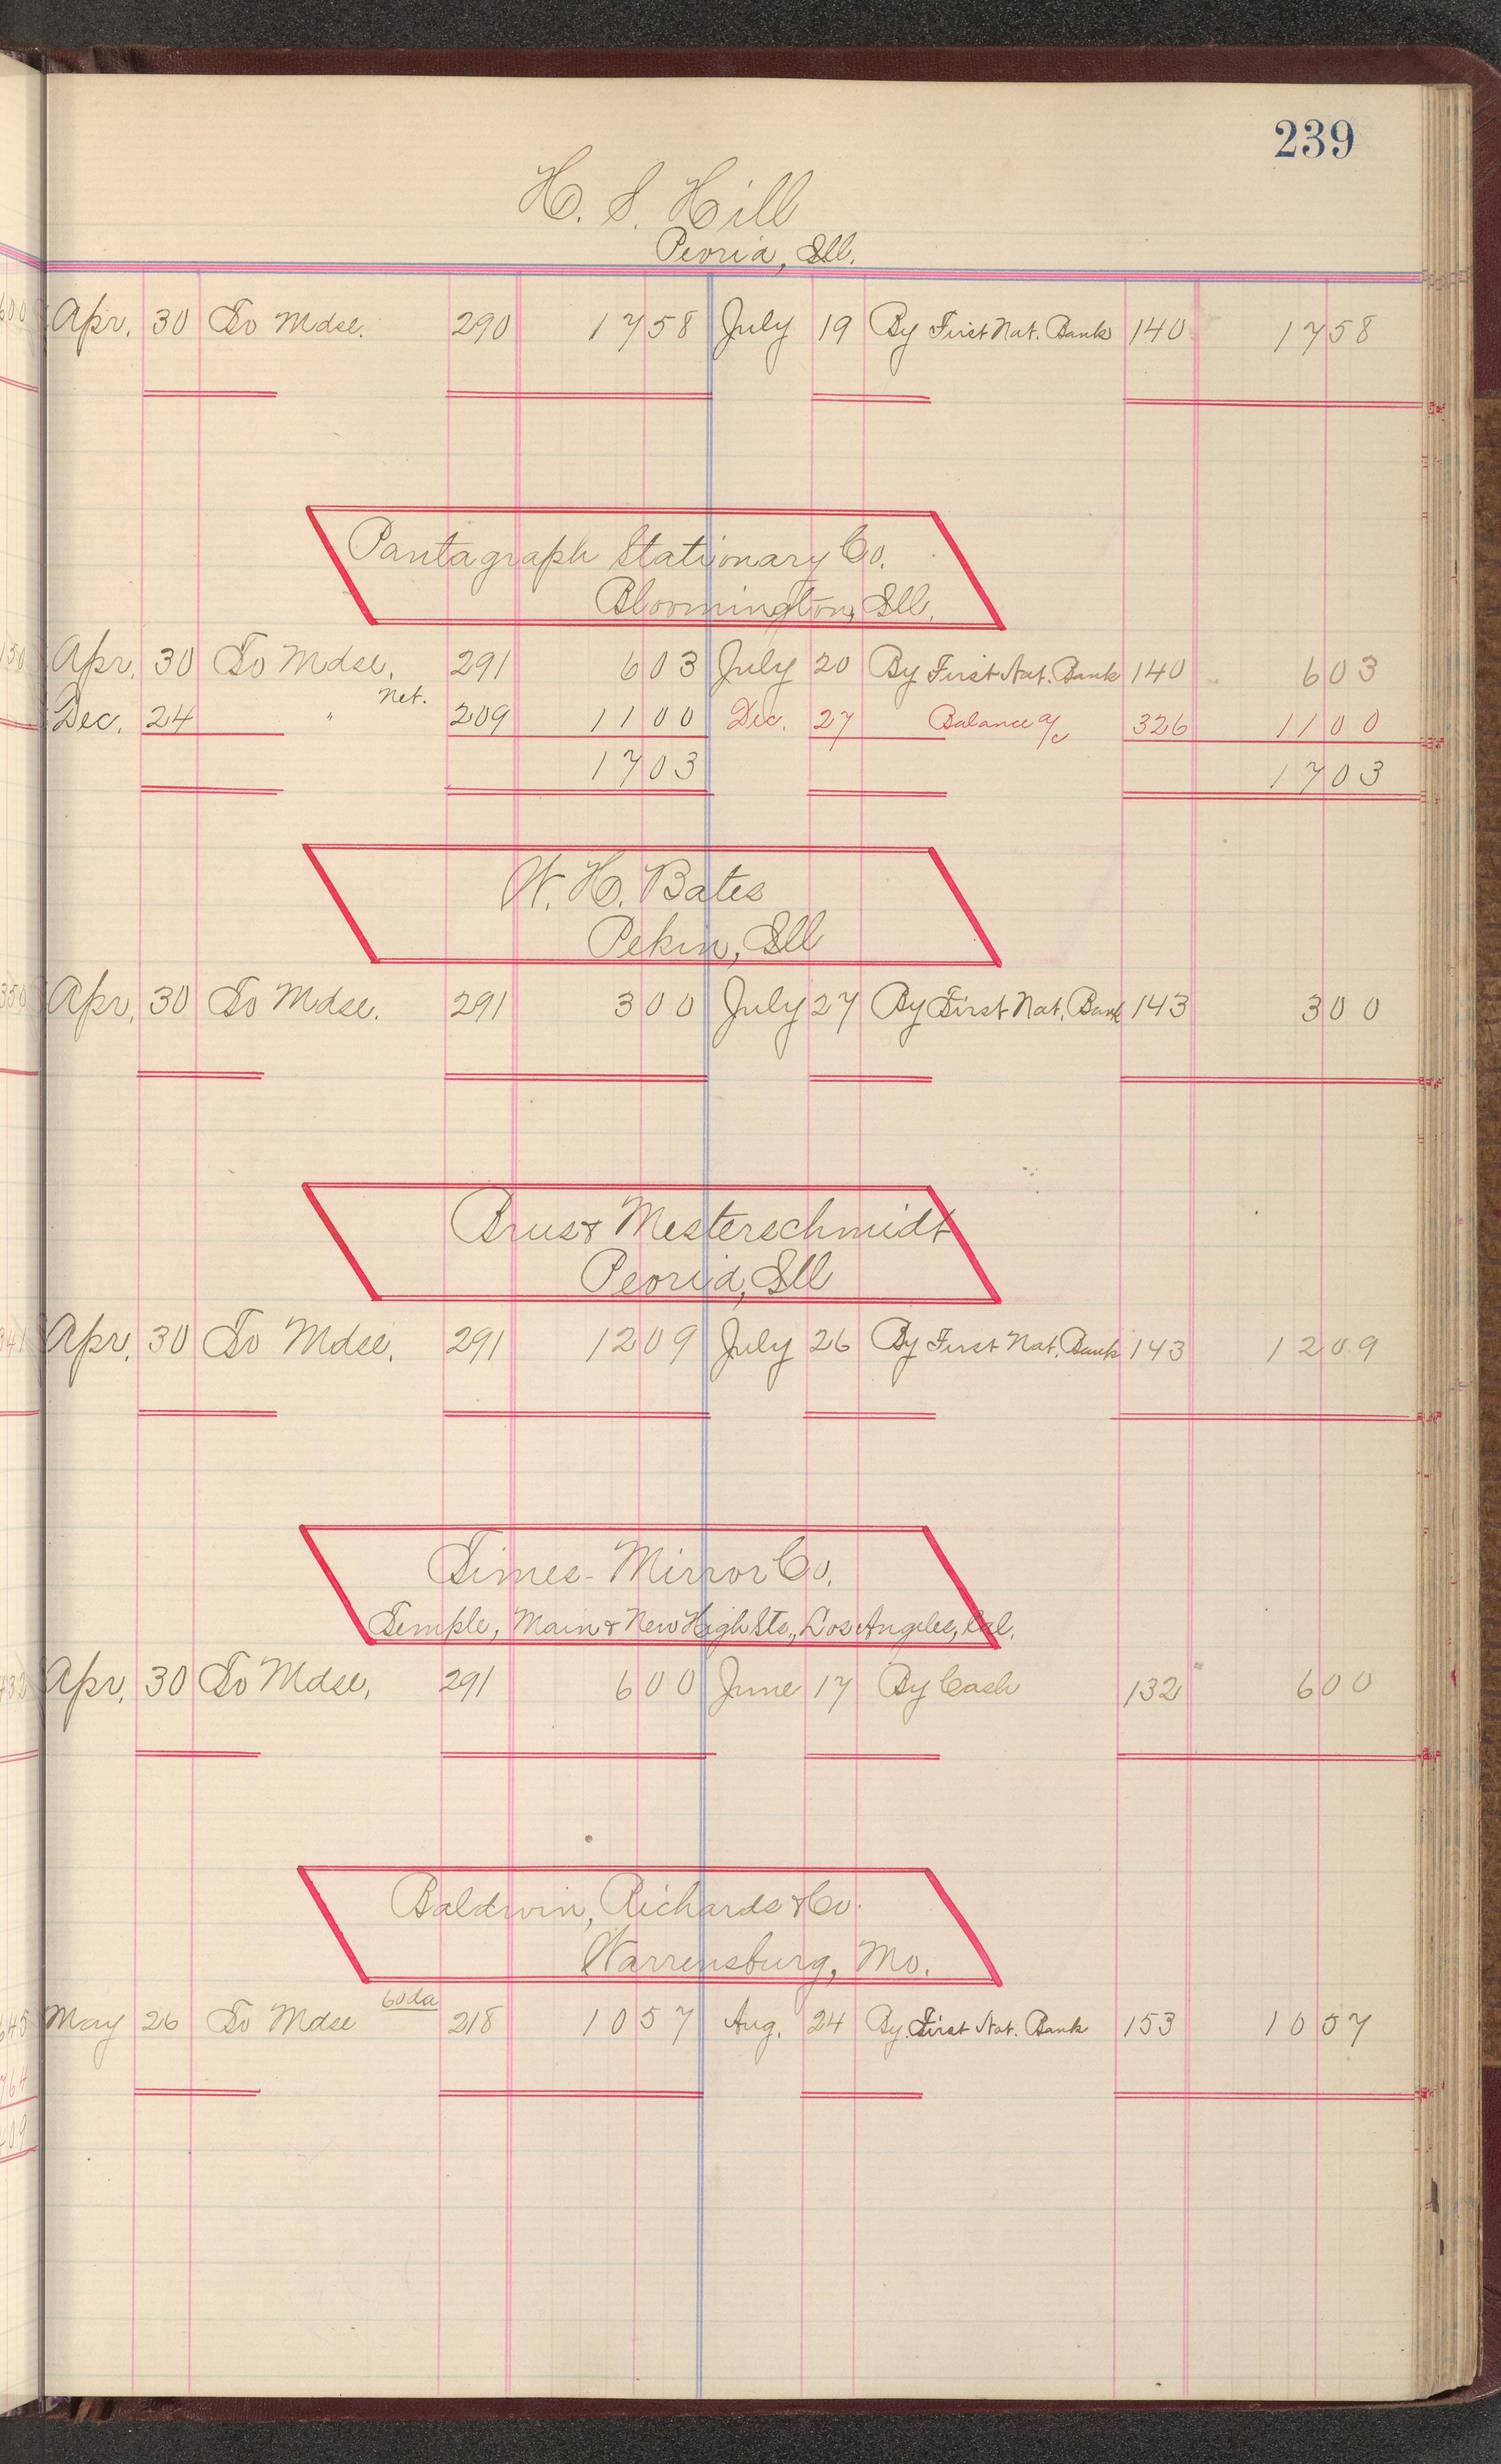 239
H. S. Hill
Peoria, Ill.
Apr. 30 To Mdse. 290 1758 July 19 By First Nat. Bank 140 1758
Pantagraph Stationary Co.
Bloomington, Ill.
Apr. 30 To Mdse. 291 603 July 20 By First Nat. Bank 140 603
Dec. 24 " Net. 209 1100 Dec. 27 Balance a/c 326 1100
1703 1703
W. H. Bates
Pekin, Ill
Apr. 30 To Mdse. 291 300 July 27 By First Nat. Bank 143 300
Brus & Mesterschmidt
Peoria, Ill
Apr. 30 To Mdse. 291 1209 July 26 By First Nat. Bank 143 1209
Times-Mirror Co.
Temple, Main & New High Sts., Los Angeles, Cal.
Apr. 30 To Mdse. 291 600 June 17 By Cash 132 600
Baldwin, Richards & Co.
Warrensburg, Mo.
May 26 To Mdse 60 da 218 1057 Aug. 24 By First Nat. Bank 153 1057